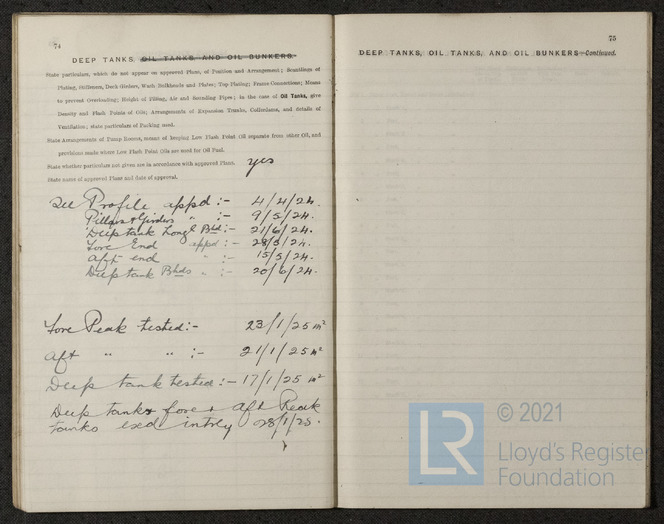 74
DEEP TANKS, OIL TANKS, AND OIL BUNKERS.
State particulars, which do not appear on approved Plans, of Position and Arrangement; Scantlings of
Plating, Stiffeners, Deck Girders, Wash Bulkheads and Plates; Top Plating; Frame Connections; Means
to prevent Overloading; Height of Filling, Air and Sounding Pipes; in the case of Oil Tanks, give
Density and Flash Points of Oils; Arrangements of Expansion Trunks, Cofferdams, and details of
Ventilation; state particulars of Packing used.
State Arrangements of Pump Rooms, means of keeping Low Flash Point Oil separate from other Oil, and
provisions made where Low Flash Point Oils are used for Oil Fuel.
State whether particulars not given are in accordance with approved Plans. yes
State name of approved Plans and date of approval.
See Profile appd :- 4/4/24.
Pillars & Girders " :- 9/5/24.
Deep tank Longl Bhd :- 21/6/24.
Fore End appd :- 28/5/24.
Aft end " :- 15/5/24.
Deep tank Bhds " :- 20/6/24.
Fore Peak tested :- 23/1/25
Aft " " :- 21/1/25
Deep tank tested :- 17/1/25
Deep tanks fore & Aft Peak
tanks exd intrly 28/1/25.
75
DEEP TANKS, OIL TANKS, AND OIL BUNKERS—Continued.
LR
© 2021
Lloyd's Register
Foundation